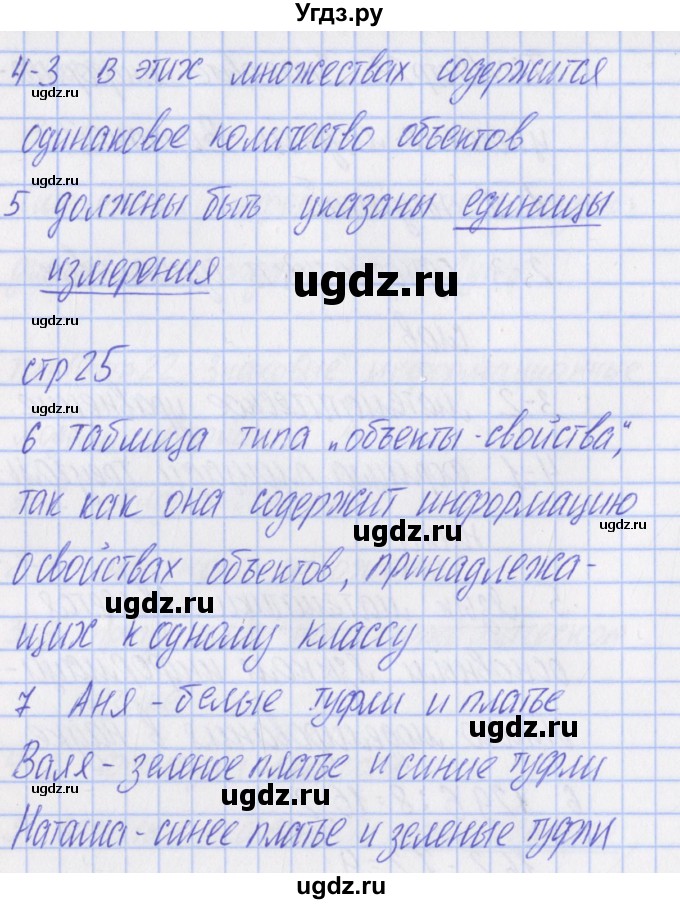 Угдз.ру
4-3 В этих множествах содержится
ugdz.ru
одинаковое количество объектов
ugdz.ru
5 должны быть указаны единицы
измерения
ugdz.ru
ugdz.ru
стр 25
ugdz.ru
6 Таблица типа „объекты-свойства",
так как она содержит информацию
ugdz.ru ugdz.ru
о свойствах объектов, принадлежа-
ugdz.ru
щих к одному классу
7 Аня - белые туфли и платье
ugdz.ru
Валя - зеленое платье и синие туфли
ugdz.ru ugdz.ru
Наташа - синее платье и зеленые туфли
ugdz.ru